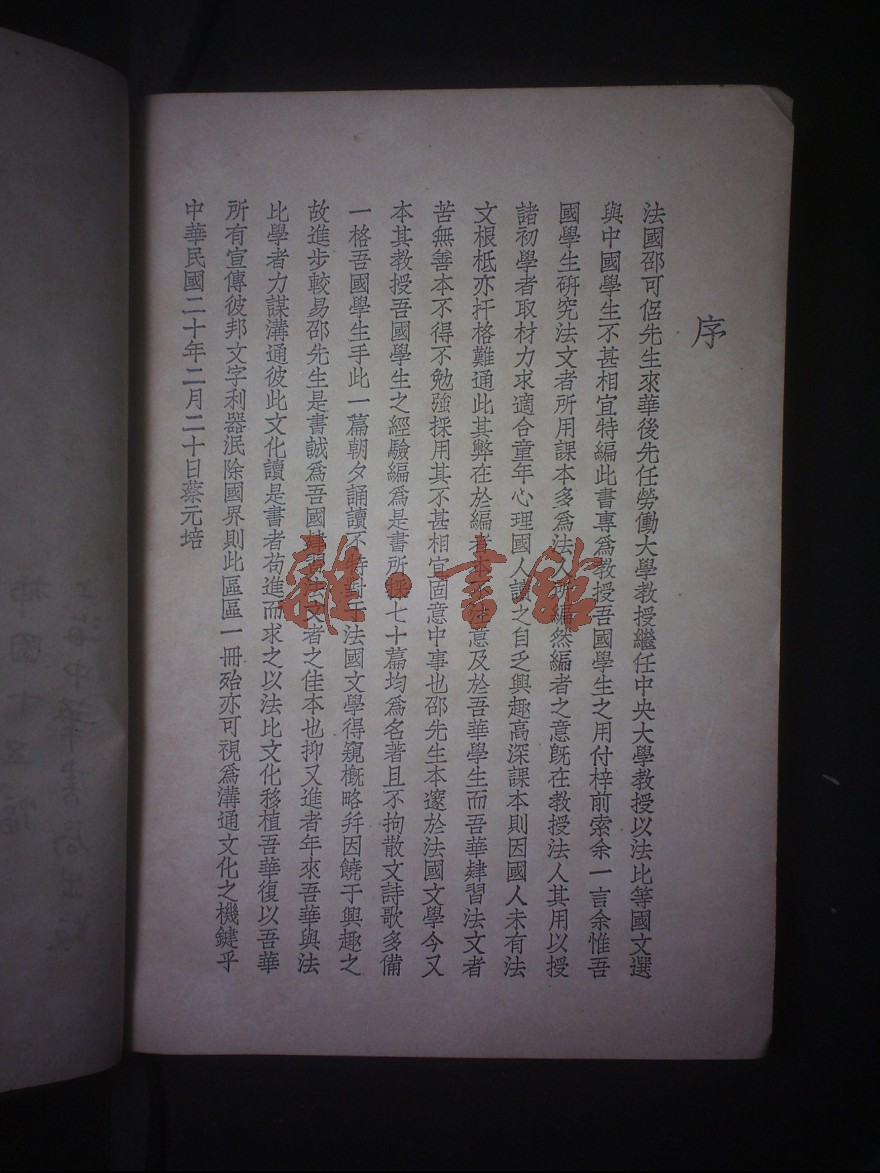 序
法國邵可侶先生來華後先任勞働大學教授繼任中央大學教授以法比等國文選
與中國學生不甚相宜特編此書專爲教授吾國學生之用付梓前索余一言余惟吾
國學生研究法文者所用課本多爲法人所編然編者之意旣在教授法人其用以授
諸初學者取材力求適合童年心理國人讀之自乏興趣高深課本則因國人未有法
文根柢亦扞格難通此其弊在於編者本不注意及於吾華學生而吾華肄習法文者
苦無善本不得不勉強採用其不甚相宜固意中事也邵先生本邃於法國文學今又
本其教授吾國學生之經驗編爲是書所採七十篇均爲名著且不拘散文詩歌多備
一格吾國學生手此一篇朝夕誦讀不特對于法國文學得窺概略幷因饒于興趣之
故進步較易邵先生是書誠爲吾國肄習法文者之佳本也抑又進者年來吾華與法
比學者力謀溝通彼此文化讀是書者苟進而求之以法比文化移植吾華復以吾華
所有宣傳彼邦文字利器泯除國界則此區區一冊殆亦可視爲溝通文化之機鍵乎
中華民國二十年二月二十日蔡元培
雜·書館